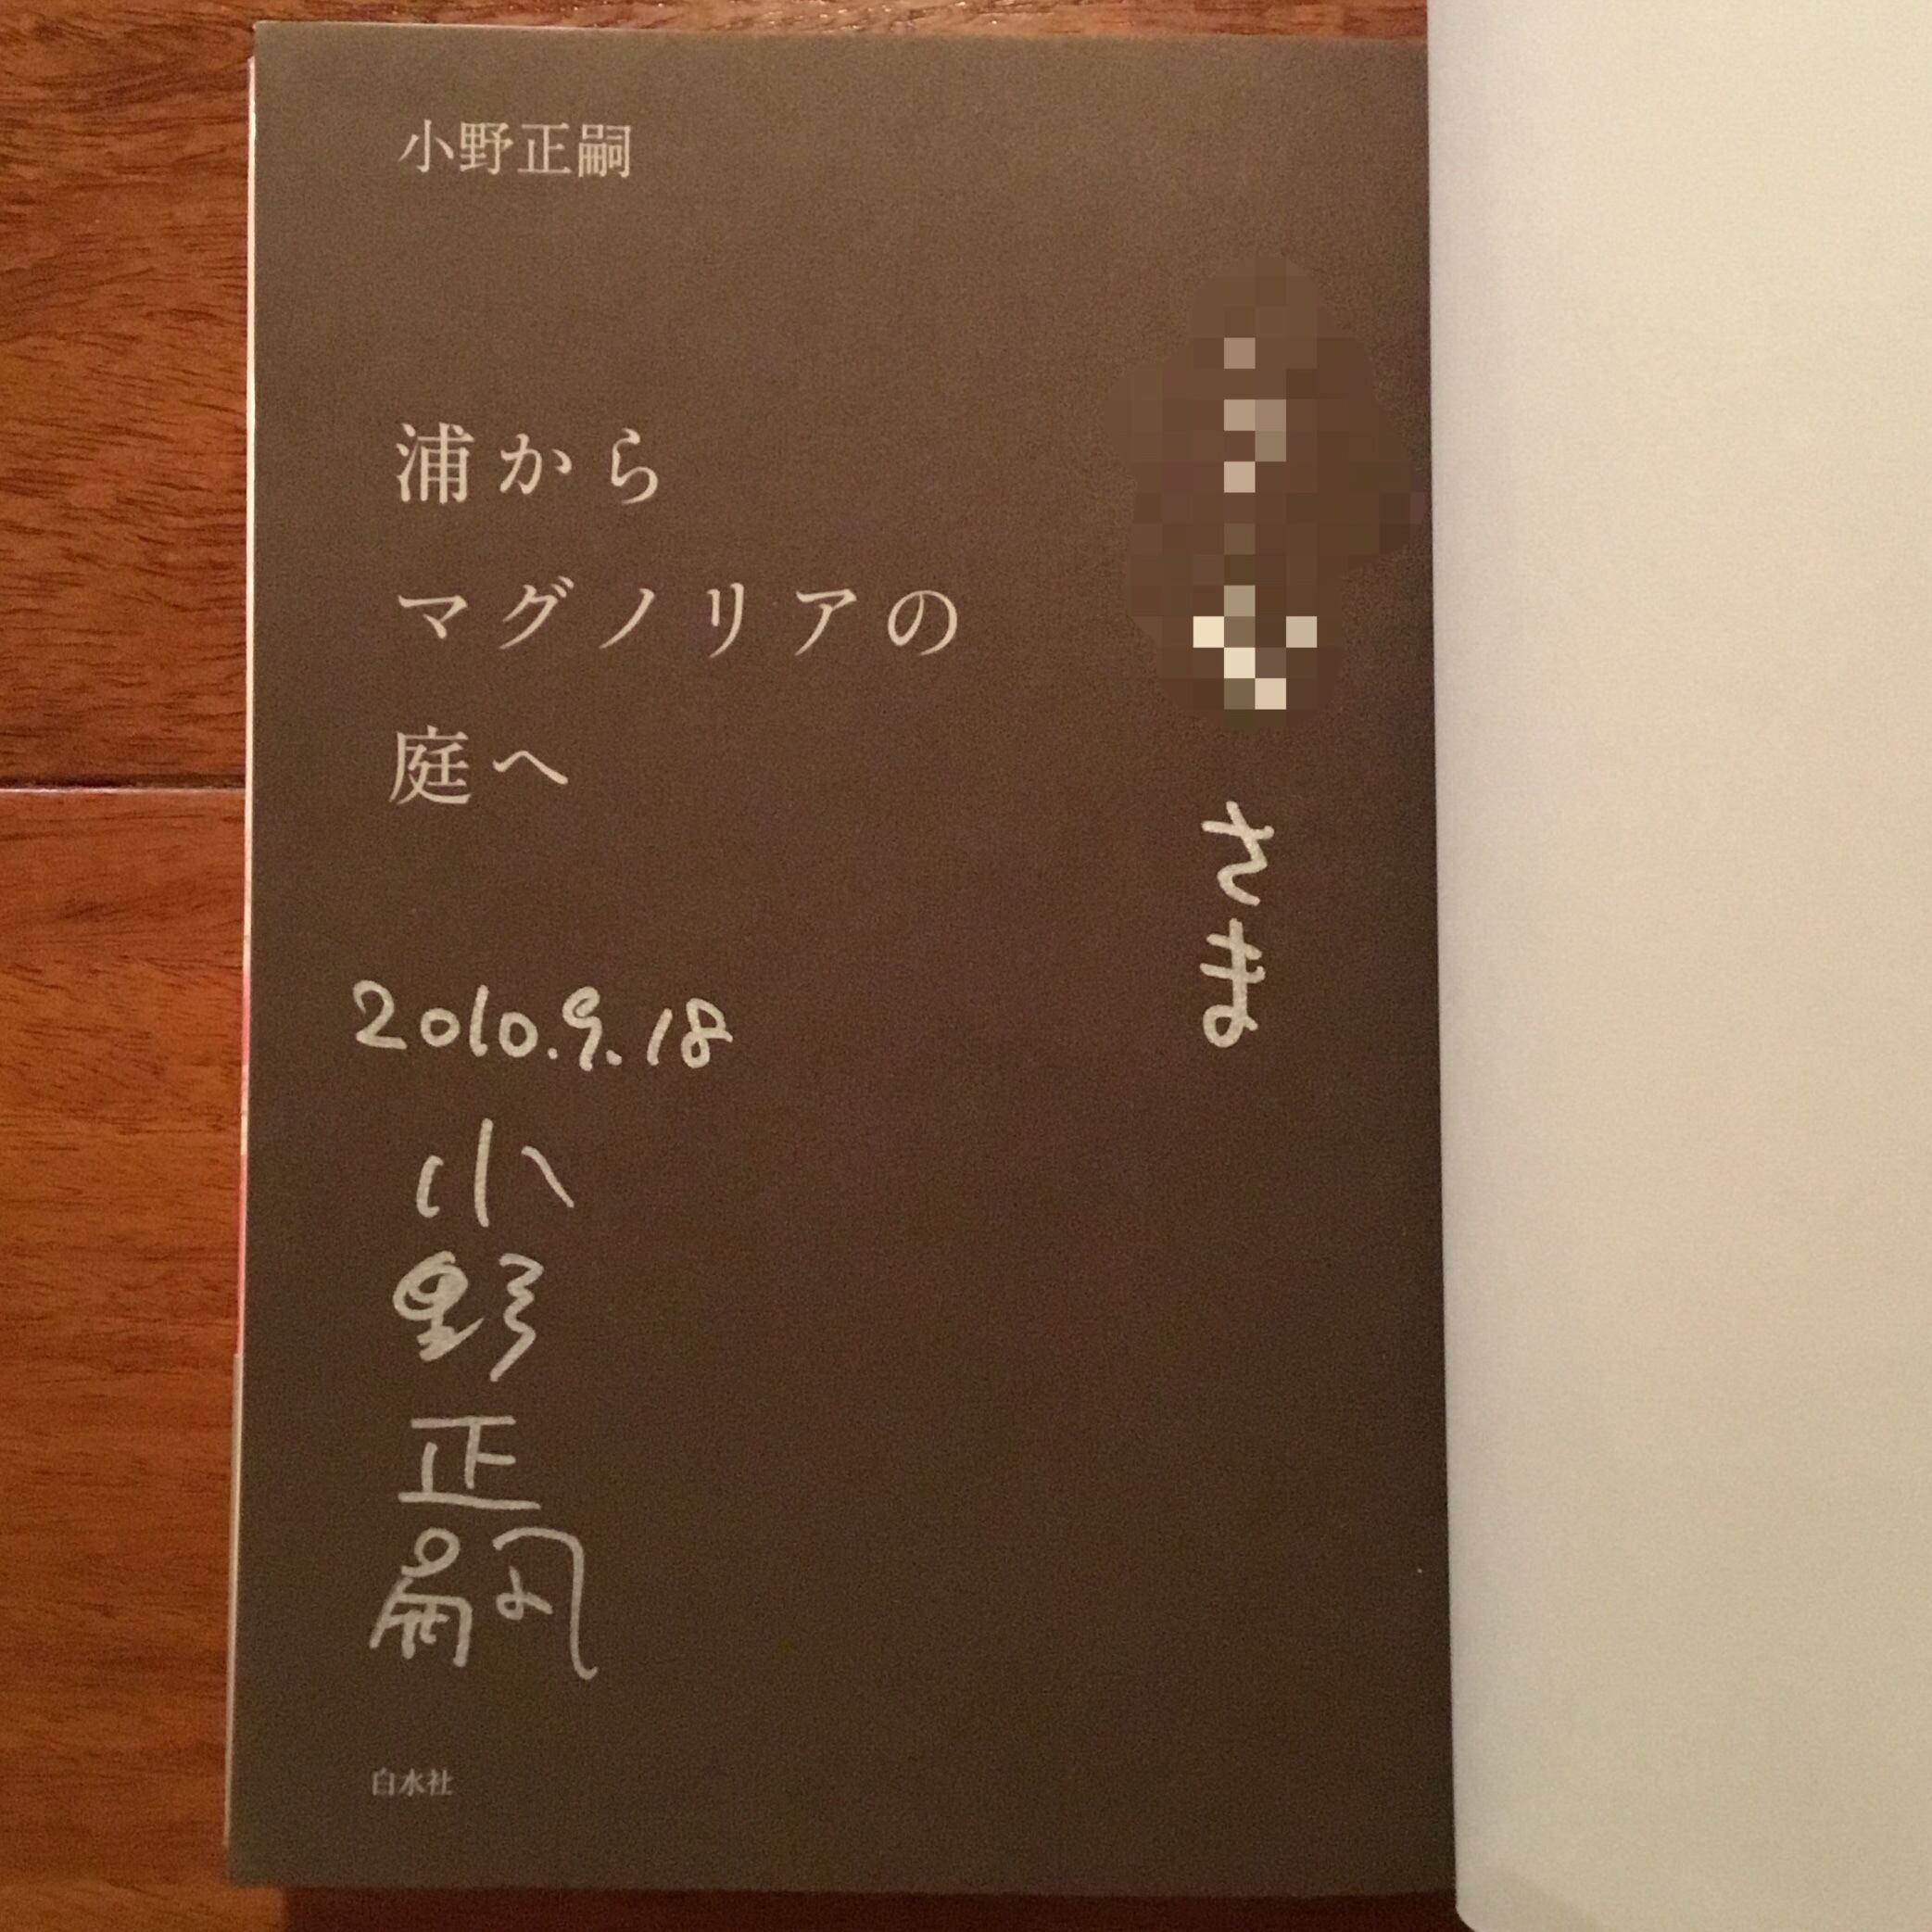 小野正嗣
浦から
マグノリアの
庭へ
さま
2010.9.18
小野正嗣
白水社